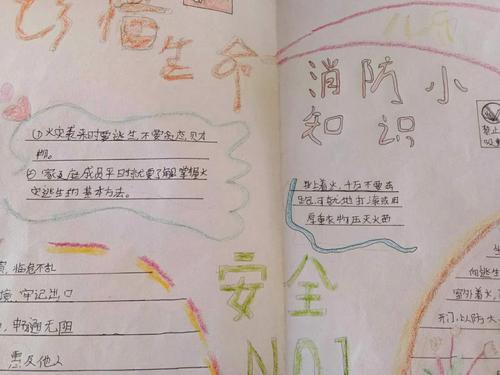 珍惜生命
①火灾袭来时要逃生,不要贪恋财
物。
② 家庭成员平时就要了解掌握火
灾逃生的基本方法。
临危不乱
牢记出口
畅通无阻
惠及他人
安全
NO1
消防小
知识
身上着火,千万不要奔
跑,可就地打滚或用
厚重衣物压灭火苗
禁止
向逃生
室外着火,
开门,以防大